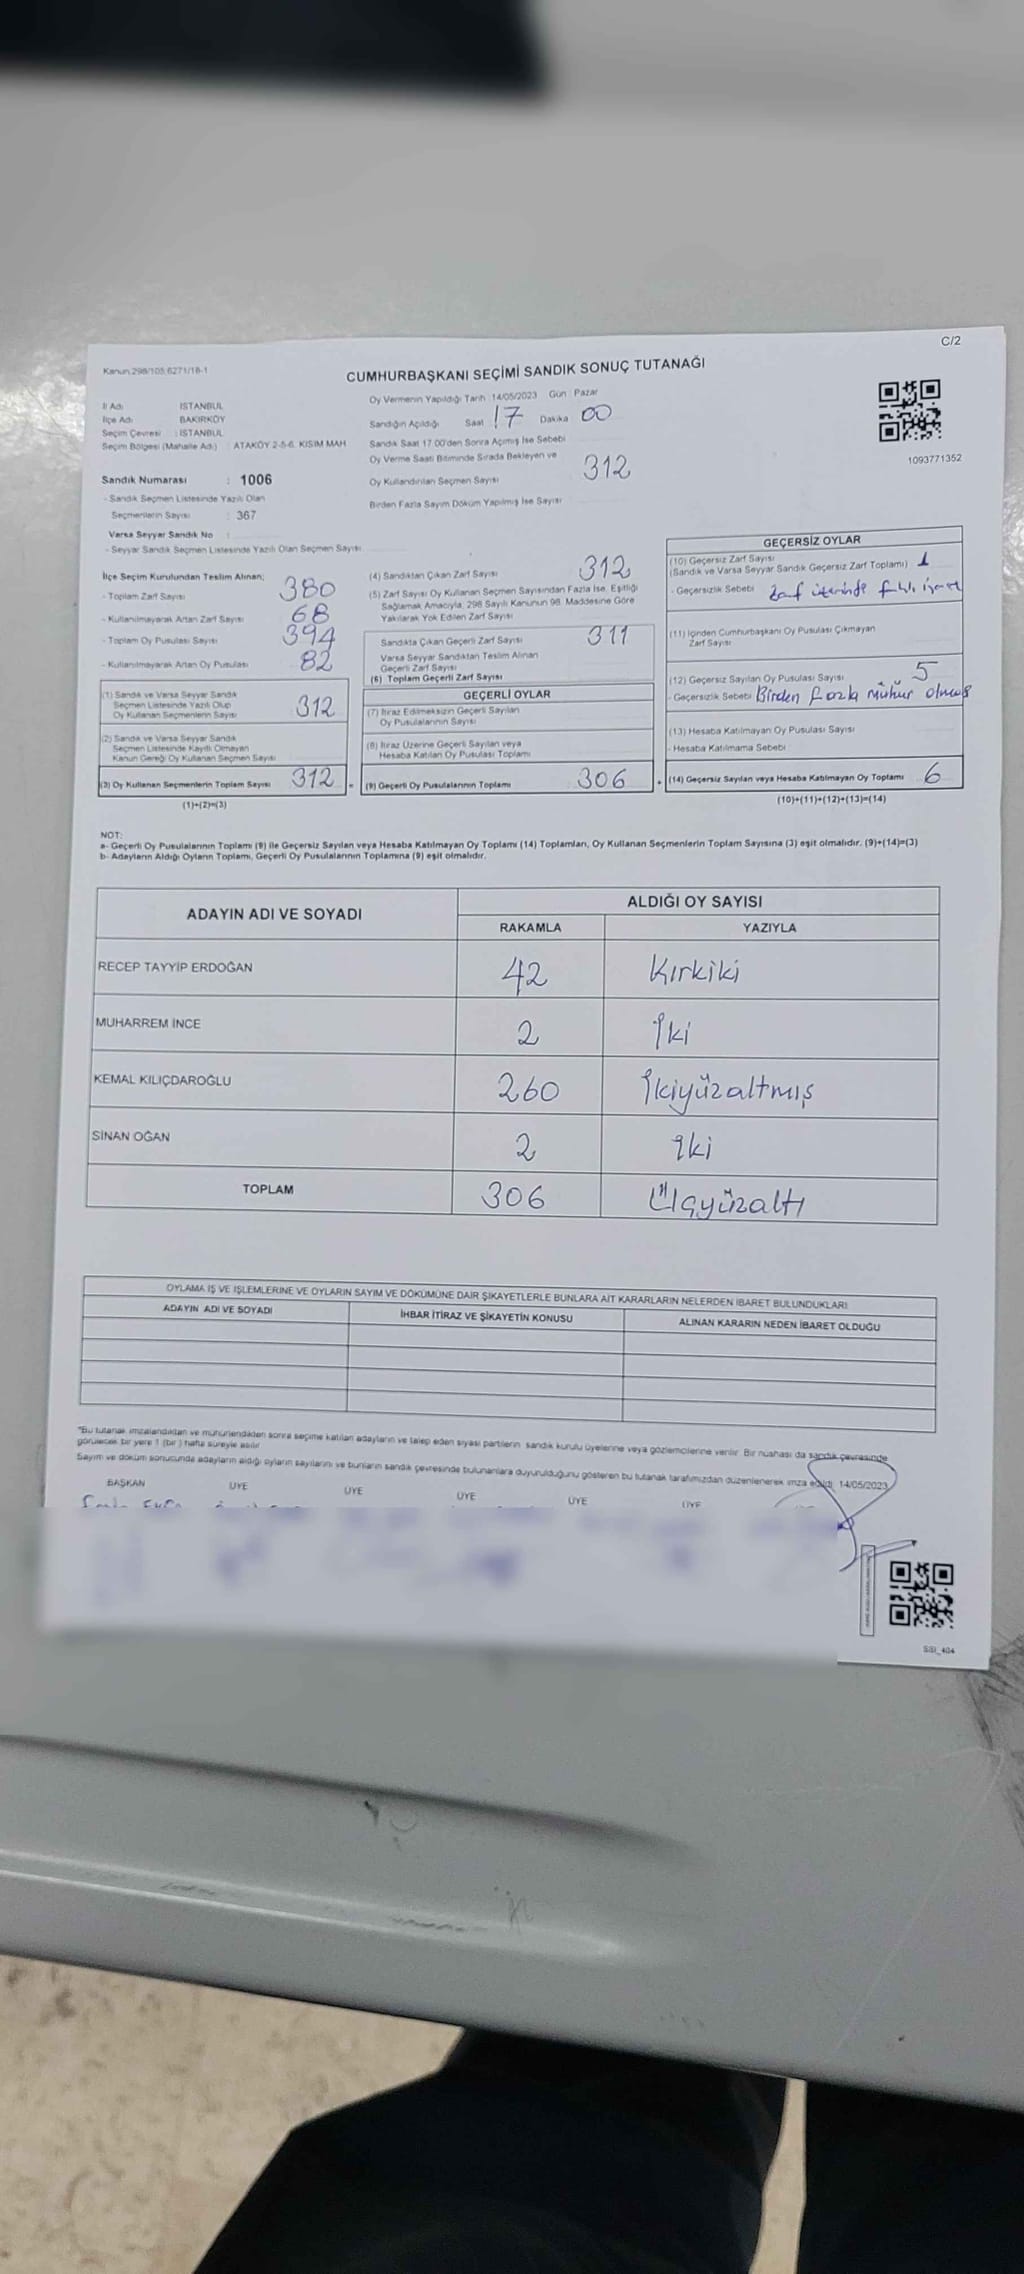 C/2
Kanun.298/105;6271/18-1
CUMHURBAŞKANI SEÇİMİ SANDIK SONUÇ TUTANAĞI
İl Adı : İSTANBUL
İlçe Adı : BAKIRKÖY
Seçim Çevresi : İSTANBUL
Seçim Bölgesi (Mahalle Adı) : ATAKÖY 2-5-6. KISIM MAH
Sandık Numarası : 1006
- Sandık Seçmen Listesinde Yazılı Olan
Seçmenlerin Sayısı : 367
Varsa Seyyar Sandık No :
- Seyyar Sandık Seçmen Listesinde Yazılı Olan Seçmen Sayısı
Oy Vermenin Yapıldığı Tarih :14/05/2023 Gün : Pazar
Sandığın Açıldığı Saat 17 Dakika 00
Sandık Saat 17.00'den Sonra Açılmış İse Sebebi
Oy Verme Saati Bitiminde Sırada Bekleyen ve
Oy Kullandırılan Seçmen Sayısı 312
Birden Fazla Sayım Döküm Yapılmış İse Sayısı
1093771352
İlçe Seçim Kurulundan Teslim Alınan;
- Toplam Zarf Sayısı 380
- Kullanılmayarak Artan Zarf Sayısı 68
- Toplam Oy Pusulası Sayısı 394
- Kullanılmayarak Artan Oy Pusulası 82
(1) Sandık ve Varsa Seyyar Sandık
Seçmen Listesinde Yazılı Olup
Oy Kullanan Seçmenlerin Sayısı 312
(2) Sandık ve Varsa Seyyar Sandık
Seçmen Listesinde Kayıtlı Olmayan
Kanun Gereği Oy Kullanan Seçmen Sayısı
(3) Oy Kullanan Seçmenlerin Toplam Sayısı 312 =
(1)+(2)=(3)
(4) Sandıktan Çıkan Zarf Sayısı 312
(5) Zarf Sayısı Oy Kullanan Seçmen Sayısından Fazla İse, Eşitliği
Sağlamak Amacıyla, 298 Sayılı Kanunun 98. Maddesine Göre
Yakılarak Yok Edilen Zarf Sayısı
Sandıkta Çıkan Geçerli Zarf Sayısı 311
Varsa Seyyar Sandıktan Teslim Alınan
Geçerli Zarf Sayısı
(6) Toplam Geçerli Zarf Sayısı
GEÇERLİ OYLAR
(7) İtiraz Edilmeksizin Geçerli Sayılan
Oy Pusulalarının Sayısı
(8) İtiraz Üzerine Geçerli Sayılan veya
Hesaba Katılan Oy Pusulası Toplamı
(9) Geçerli Oy Pusulalarının Toplamı 306 +
GEÇERSİZ OYLAR
(10) Geçersiz Zarf Sayısı
(Sandık ve Varsa Seyyar Sandık Geçersiz Zarf Toplamı) 1
- Geçersizlik Sebebi Zarf üzerinde farklı işaret
(11) İçinden Cumhurbaşkanı Oy Pusulası Çıkmayan
Zarf Sayısı
(12) Geçersiz Sayılan Oy Pusulası Sayısı 5
- Geçersizlik Sebebi Birden fazla mühür olması
(13) Hesaba Katılmayan Oy Pusulası Sayısı
- Hesaba Katılmama Sebebi
(14) Geçersiz Sayılan veya Hesaba Katılmayan Oy Toplamı 6
(10)+(11)+(12)+(13)=(14)
NOT:
a- Geçerli Oy Pusulalarının Toplamı (9) ile Geçersiz Sayılan veya Hesaba Katılmayan Oy Toplamı (14) Toplamları, Oy Kullanan Seçmenlerin Toplam Sayısına (3) eşit olmalıdır. (9)+(14)=(3)
b- Adayların Aldığı Oyların Toplamı, Geçerli Oy Pusulalarının Toplamına (9) eşit olmalıdır.
ADAYIN ADI VE SOYADI ALDIĞI OY SAYISI
RAKAMLA YAZIYLA
RECEP TAYYİP ERDOĞAN 42 Kırkiki
MUHARREM İNCE 2 İki
KEMAL KILIÇDAROĞLU 260 İkiyüzaltmış
SİNAN OĞAN 2 iki
TOPLAM 306 Üçyüzaltı
OYLAMA İŞ VE İŞLEMLERİNE VE OYLARIN SAYIM VE DÖKÜMÜNE DAİR ŞİKAYETLERLE BUNLARA AİT KARARLARIN NELERDEN İBARET BULUNDUKLARI
ADAYIN ADI VE SOYADI İHBAR İTİRAZ VE ŞİKAYETİN KONUSU ALINAN KARARIN NEDEN İBARET OLDUĞU
*Bu tutanak imzalandıktan ve mühürlendikten sonra seçime katılan adayların ve talep eden siyasi partilerin sandık kurulu üyelerine veya gözlemcilerine verilir. Bir nüshası da sandık çevresinde
görülecek bir yere 1 (bir ) hafta süreyle asılır.
Sayım ve döküm sonucunda adayların aldığı oyların sayılarını ve bunların sandık çevresinde bulunanlara duyurulduğunu gösteren bu tutanak tarafımızdan düzenlenerek imza edildi. 14/05/2023
BAŞKAN ÜYE ÜYE ÜYE ÜYE ÜYE
SSI_404